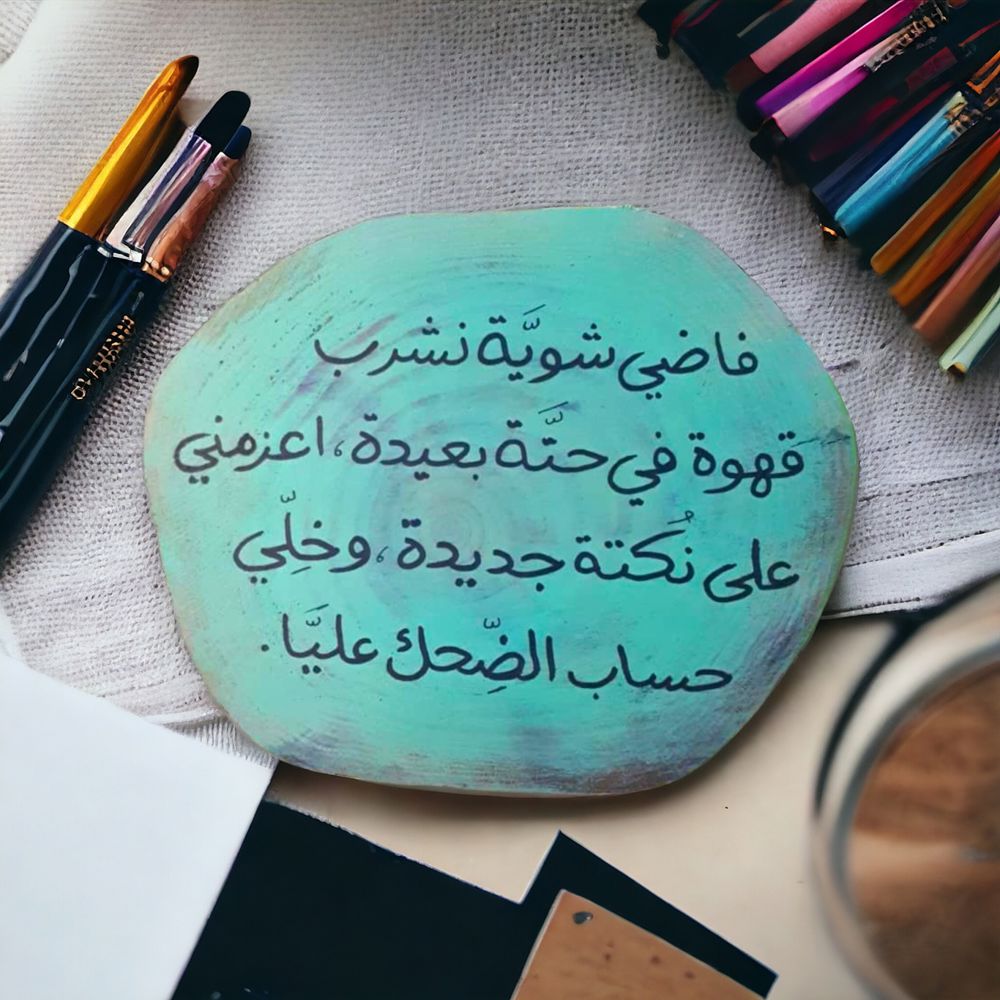 فاضي شويَّة نشرب
قهوة في حتَّة بعيدة، اعزمني
على نُكتة جديدة، وخلِّي
حساب الضِّحك عليَّا.